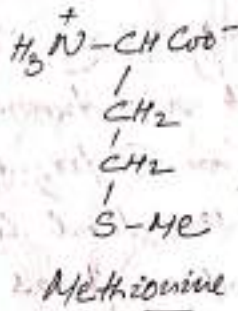 H₃N⁺–CHCOO⁻
CH₂
CH₂
S–Me
Methionine